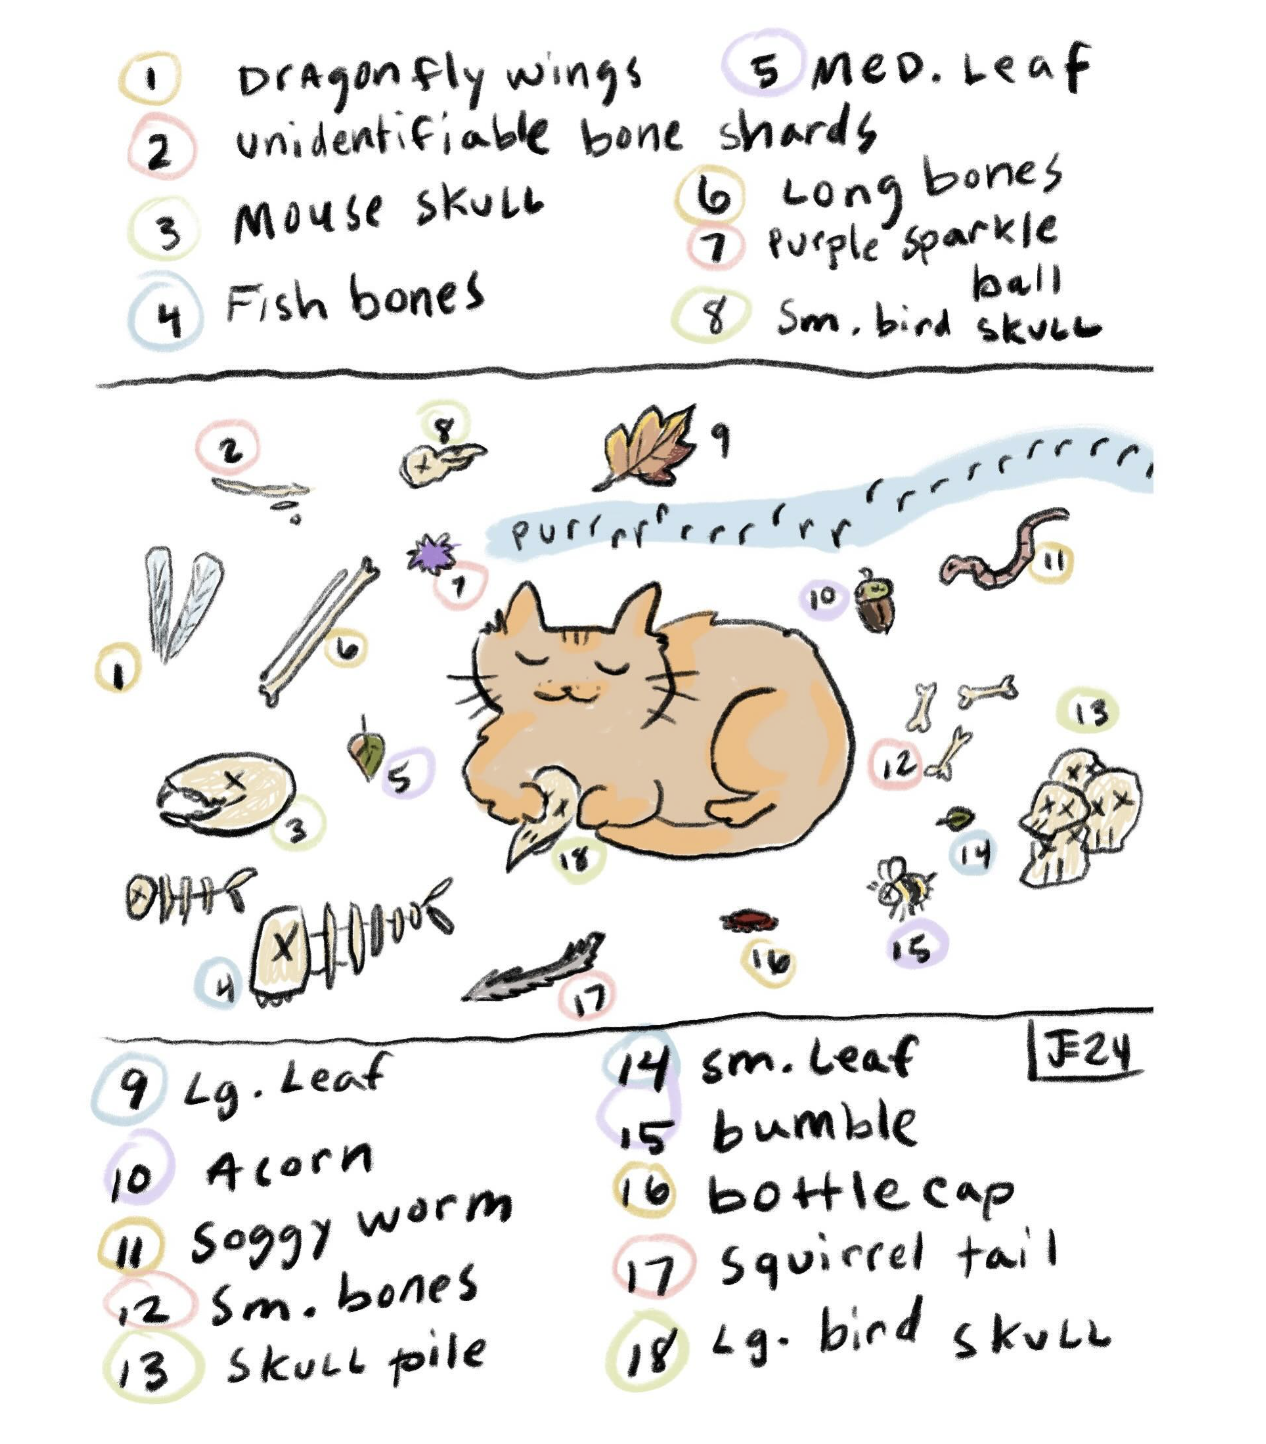 1 Dragonfly wings
2 unidentifiable bone shards
3 Mouse skull
4 Fish bones
5 Med. Leaf
6 Long bones
7 Purple sparkle
ball
8 Sm. bird skull
2
8
9
purrrrrrrrrrrrrrrrrrr
11
7
10
1
6
13
5
12
3
18
14
15
16
4
17
9 Lg. Leaf
10 Acorn
11 Soggy worm
12 Sm. bones
13 Skull pile
14 Sm. Leaf
15 bumble
16 bottle cap
17 Squirrel tail
18 Lg. bird skull
JE24